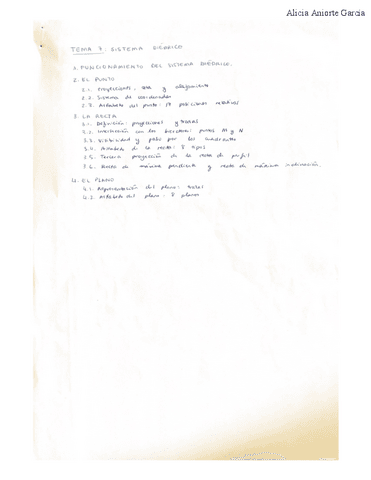 Alicia Aniorte Garcia
TEMA 7: SISTEMA DIÉDRICO
1. FUNCIONAMIENTO DEL SISTEMA DIÉDRICO.
2. EL PUNTO
2.1. Proyecciones, cota y alejamiento
2.2. Sistema de coordenadas
2.3. Alfabeto del punto: 17 posiciones
3. LA RECTA
3.1. Definición: proyecciones y trazas
3.2. Intersección con los bisectores: puntos M y N
3.3. Visibilidad y paso por los cuadrantes
3.4. Alfabeto de la recta: 8 tipos
3.5. Tercera proyección de la recta de perfil
3.6. Recta de máxima pendiente y recta de máxima inclinación
4. EL PLANO
4.1. Representación del plano: trazas
4.2. Alfabeto del plano: 8 planos